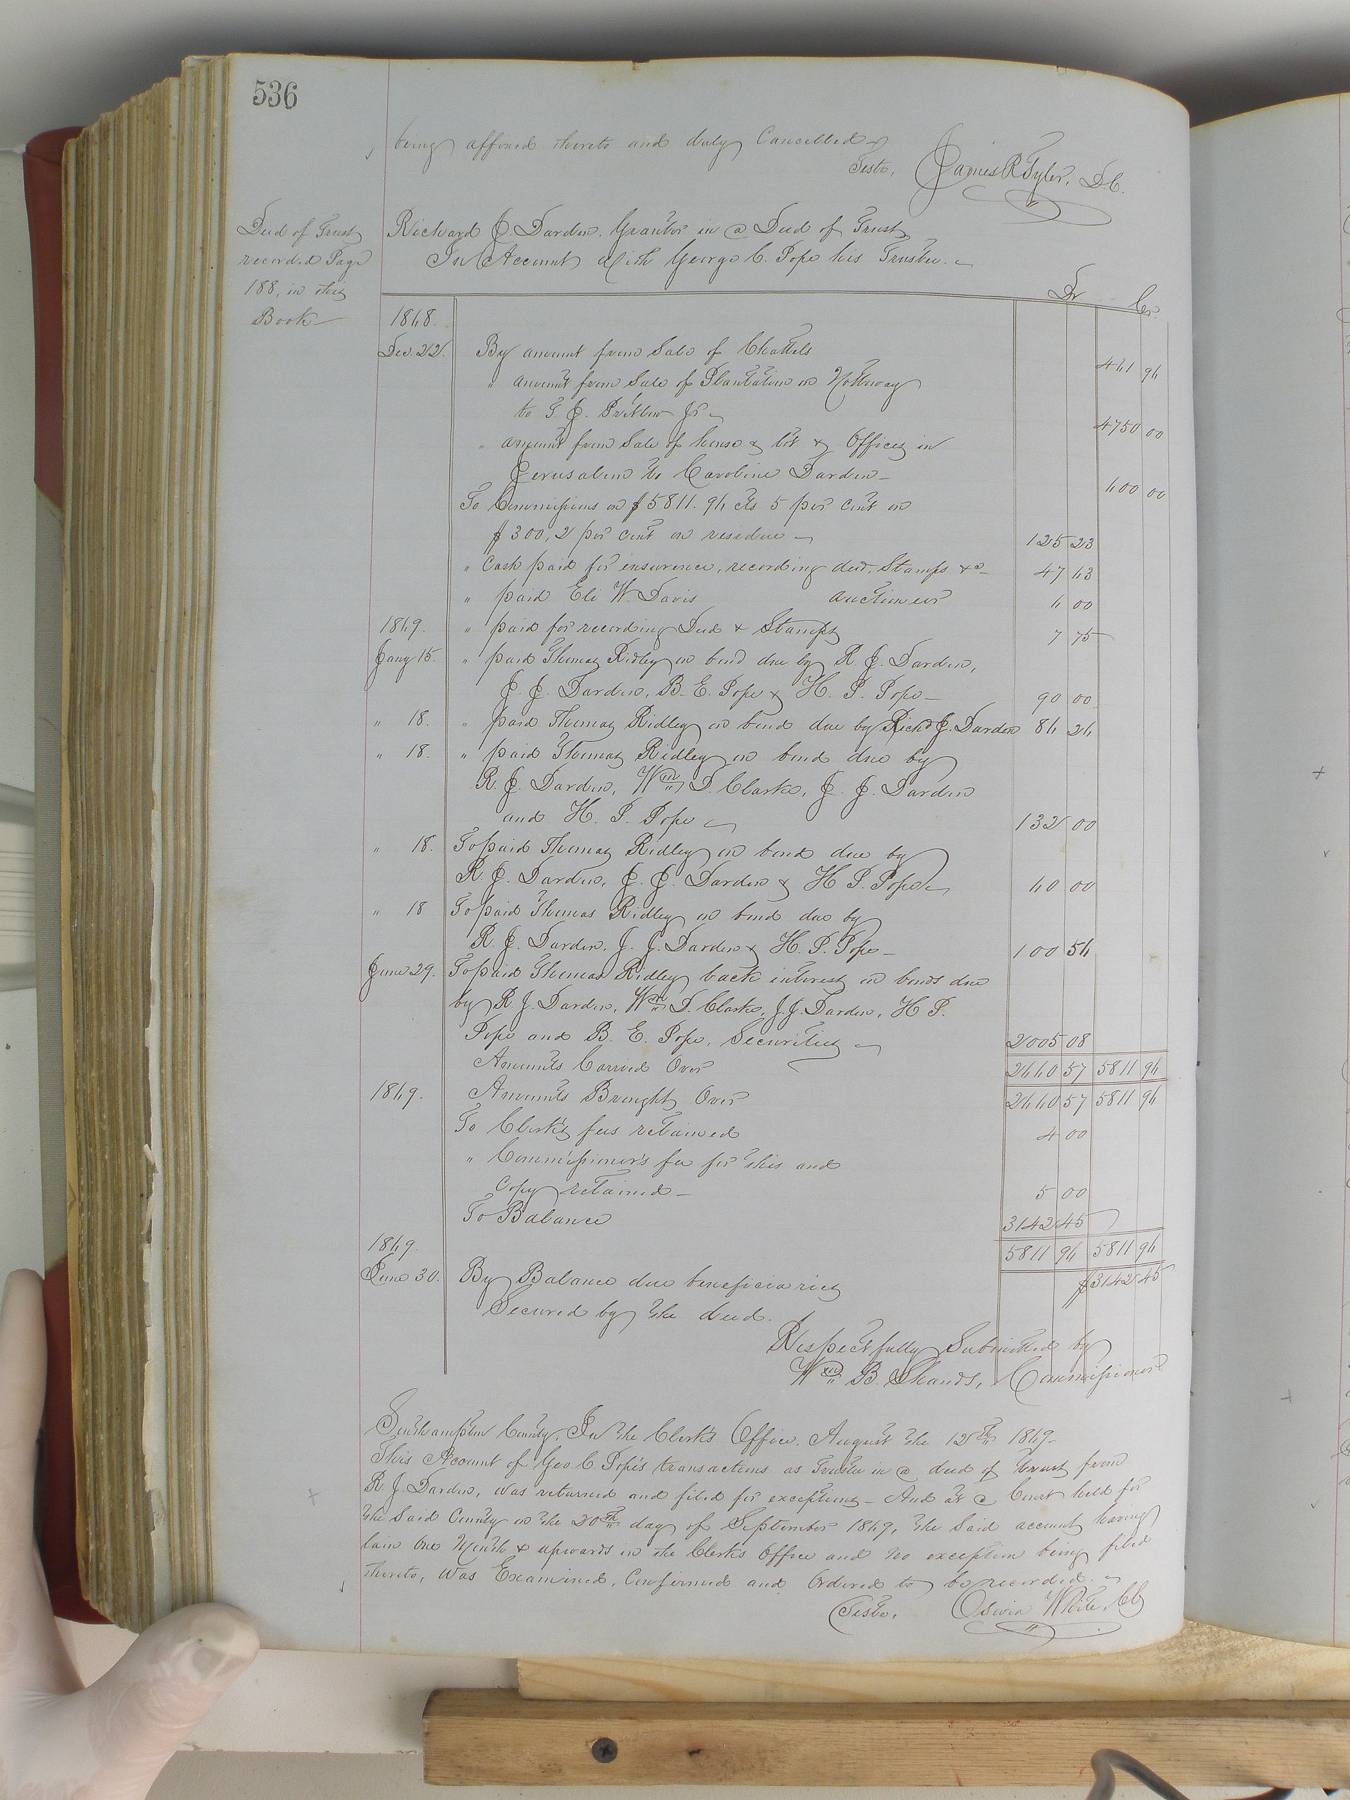 536
being affixed thereto and duly Cancelled
Teste, James R Tyler, D.C.
Deed of Trust
recorded Page
188, in this
Book
Richard J. Darden, Grantor in a Deed of Trust
In Account with George C. Pope his Trustee.
Dr Cr.
1868.
Dec. 22. By amount from Sale of Chattels 461 96
" amount from Sale of Plantation on Nottoway
to T. J. Pretlow Jr 4750 00
" amount from Sale of house & lot & Offices in
Jerusalem to Caroline Darden 600 00
To Commissions on $5811.96 cts 5 per cent on
$300, 2 per cent on residue 125 23
" Cash paid for insurance, recording deed, Stamps &c 47 63
" paid Eli W. Davis auctioneer 6 00
1869. " paid for recording Deed & Stamps 7 75
Jany 15. " paid Thomas Ridley on bond due by R. J. Darden,
J. J. Darden, B. E. Pope & H. P. Pope 90 00
" 18. " paid Thomas Ridley on bond due by Richd J. Darden 86 26
" 18. " paid Thomas Ridley on bond due by
R. J. Darden, Wm D. Clarke, J. J. Darden
and H. P. Pope 132 00
" 18. To paid Thomas Ridley on bond due by
R. J. Darden, J. J. Darden & H P. Pope 60 00
" 18 To paid Thomas Ridley on bond due by
R. J. Darden, J. J. Darden & H. P. Pope 100 56
June 29. To paid Thomas Ridley back interest on bonds due
by R J. Darden, Wm D. Clarke, J. J. Darden, H P.
Pope and B. E. Pope, Securities 2005 08
Amounts Carried Over 2660 51 5811 96
1869. Amounts Brought Over 2660 51 5811 96
To Clerk's fees retained 4 00
" Commissioner's fee for this and
copy retained 5 00
To Balance 3142 45
1869 5811 96 5811 96
June 30. By Balance due beneficiaries $3142 45
Secured by the deed.
Respectfully Submitted by
Wm B. Shands, Commissioner
Southampton County, In the Clerk's Office, August the 12th 1869.
This Account of Geo C. Pope's transactions as Trustee in a deed of trust from
R. J. Darden, was returned and filed for exceptions. And at a Court held for
the Said County on the 20th day of September 1869, the Said account having
lain One Month & upwards in the Clerk's Office and no exception being filed
thereto, was Examined, Confirmed and Ordered to be recorded.
Teste, Oswin White, CC